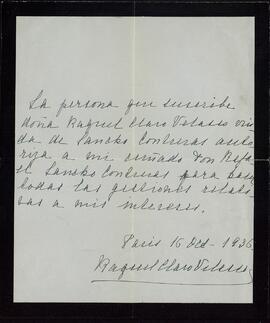 La persona que suscribe
doña Raquel Claro Velasco viu-
da de Sancho Contreras auto-
riza a mi cuñado Don Rafa-
el Sancho Contreras para
todas las gestiones relati-
vas a mis intereses.
Paris 16 Dcb - 1936
Raquel Claro Velasco